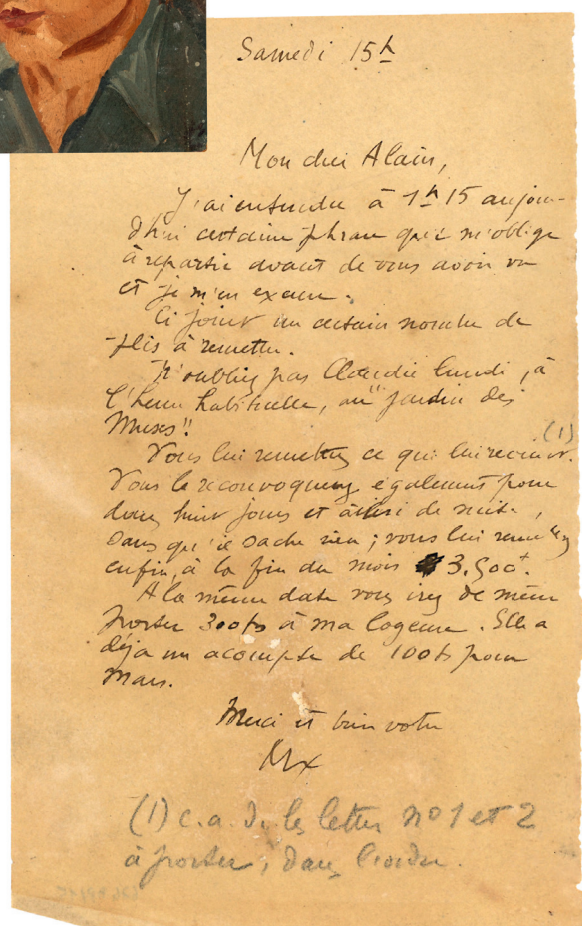 Samedi 15h
Mon cher Alain,
J'ai entendu à 1h15 aujour-
d'hui certaine phrase qui m'oblige
à repartir avant de vous avoir vu
et je m'en excuse.
Ci joint un certain nombre de
plis à remettre.
N'oubliez pas Claudie lundi, à
l'heure habituelle, au "jardin des
Muses"!
(1)
Vous lui remettrez ce qui lui revient.
Vous le reconvoquerez également pour
dans huit jours et ainsi de suite,
sans qu'il sache rien ; vous lui remettrez
enfin, à la fin du mois 3.500f.
A la même date vous irez de même
porter 300f à ma logeuse. Elle a
déjà un acompte de 100f pour
Mars.
Merci et bien votre
Mx
(1) c.a.d. les lettres no 1 et 2
à porter, dans l'ordre.